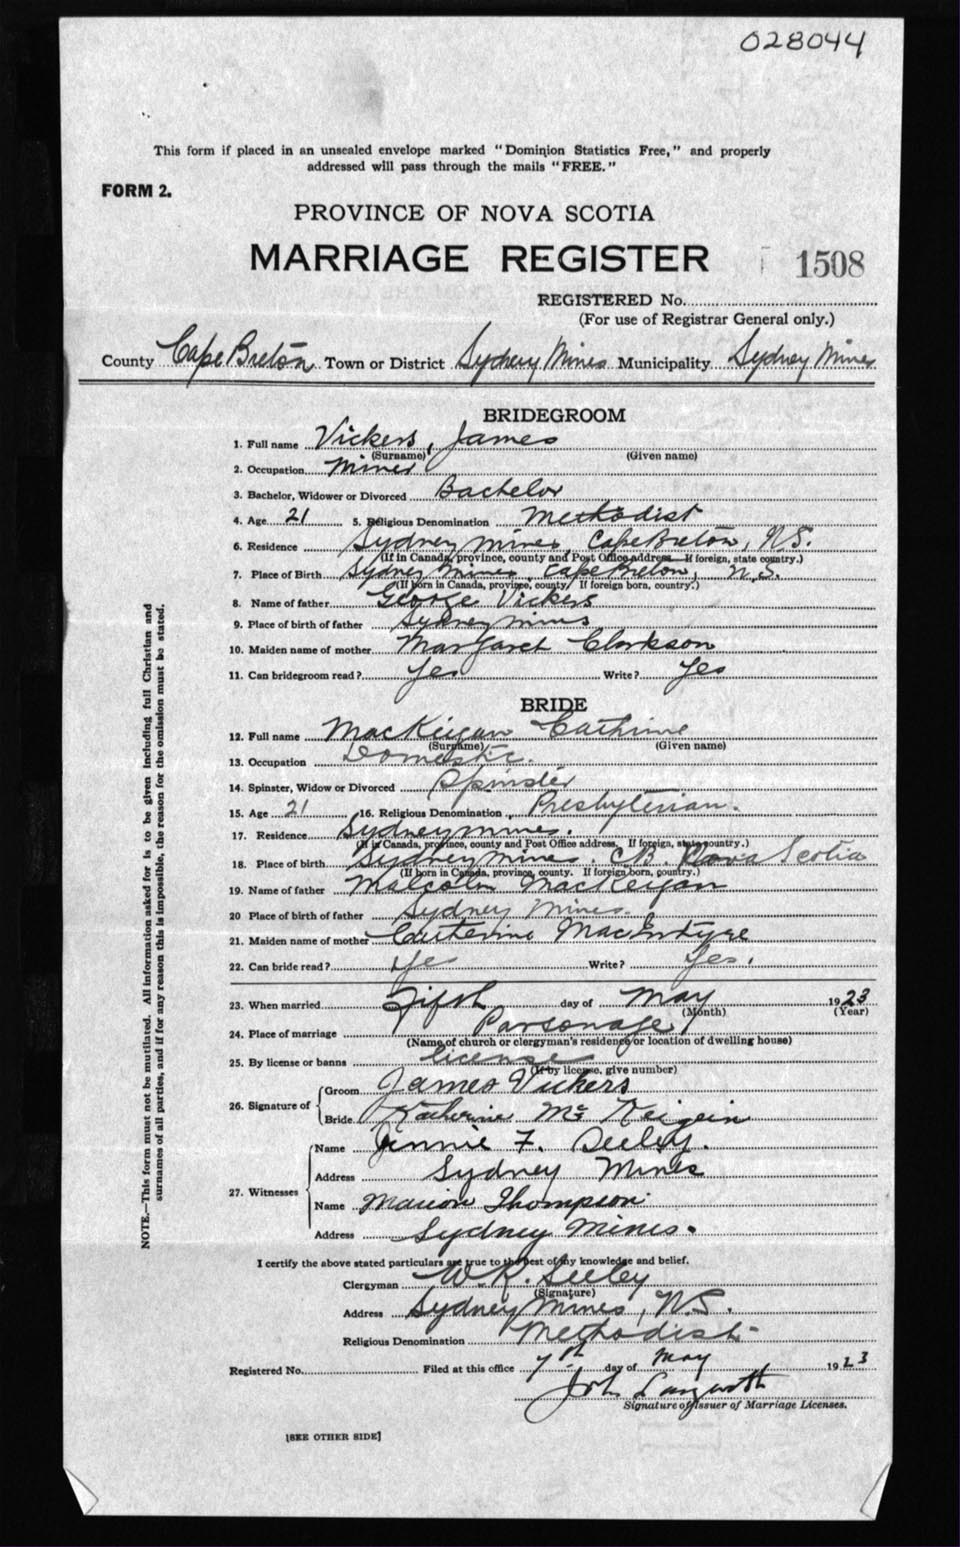 028044
This form if placed in an unsealed envelope marked "Dominion Statistics Free," and properly
addressed will pass through the mails "FREE."
FORM 2.
PROVINCE OF NOVA SCOTIA
MARRIAGE REGISTER 1508
REGISTERED No.
(For use of Registrar General only.)
County Cape Breton Town or District Sydney Mines Municipality Sydney Mines
BRIDEGROOM
1. Full name Vickers, James
(Surname) (Given name)
2. Occupation Miner
3. Bachelor, Widower or Divorced Bachelor
4. Age 21 5. Religious Denomination Methodist
6. Residence Sydney Mines, Cape Breton, N.S.
(If in Canada, province, county and Post Office address. If foreign, state country.)
7. Place of Birth Sydney Mines Cape Breton, N.S.
(If born in Canada, province, county. If foreign born, country.)
8. Name of father George Vickers
9. Place of birth of father Sydney Mines
10. Maiden name of mother Margaret Clarkson
11. Can bridegroom read? Yes Write? Yes
BRIDE
12. Full name MacKeigan Cathrine
(Surname) (Given name)
13. Occupation Domestic.
14. Spinster, Widow or Divorced Spinster
15. Age 21 16. Religious Denomination Presbyterian.
17. Residence Sydney Mines.
(If in Canada, province, county and Post Office address. If foreign, state country.)
18. Place of birth Sydney Mines. C.B. Nova Scotia
(If born in Canada, province, county. If foreign born, country.)
19. Name of father Malcolm MacKeigan
20 Place of birth of father Sydney Mines.
21. Maiden name of mother Catherine MacIntyre
22. Can bride read? Yes Write? Yes.
23. When married Fifth day of May 1923
(Month) (Year)
24. Place of marriage Parsonage
(Name of church or clergyman's residence or location of dwelling house)
25. By license or banns license
(If by license, give number)
26. Signature of
Groom James Vickers
Bride Katherine Mc Keigein
27. Witnesses
Name Jennie F. Seeley.
Address Sydney Mines
Name Marion Thompson.
Address Sydney Mines.
I certify the above stated particulars are true to the best of my knowledge and belief.
Clergyman W.R. Seeley
(Signature)
Address Sydney Mines, N.S.
Religious Denomination Methodist
Registered No. Filed at this office 7th day of May 1923
John Langworth
Signature of Issuer of Marriage Licenses.
[SEE OTHER SIDE]
NOTE.—This form must not be mutilated. All information asked for is to be given including full Christian and
surnames of all parties, and if for any reason this is impossible, the reason for the omission must be stated.